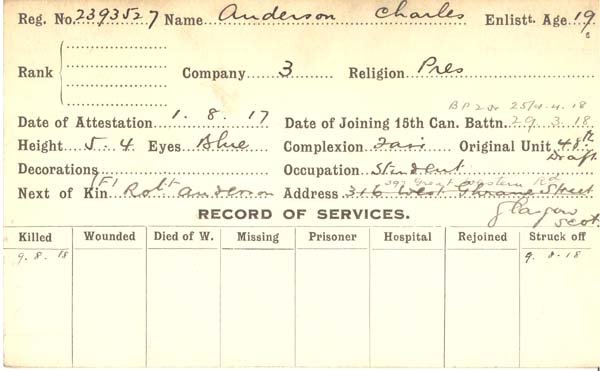 Reg. No. 2393527 Name Anderson Charles Enlistt. Age 19
Rank Company 3 Religion Pres
BP2 25/4.4.18
Date of Attestation 1.8.17 Date of Joining 15th Can. Battn. 29.3.18
Height 5.4 Eyes Blue Complexion Fair Original Unit 48th Draft
Decorations Occupation Student
Great Western Rd
Next of Kin (F) Robt Anderson Address 316 West Street
Glasgow Scot.
RECORD OF SERVICES.
Killed Wounded Died of W. Missing Prisoner Hospital Rejoined Struck off
9.8.18 9.8.18